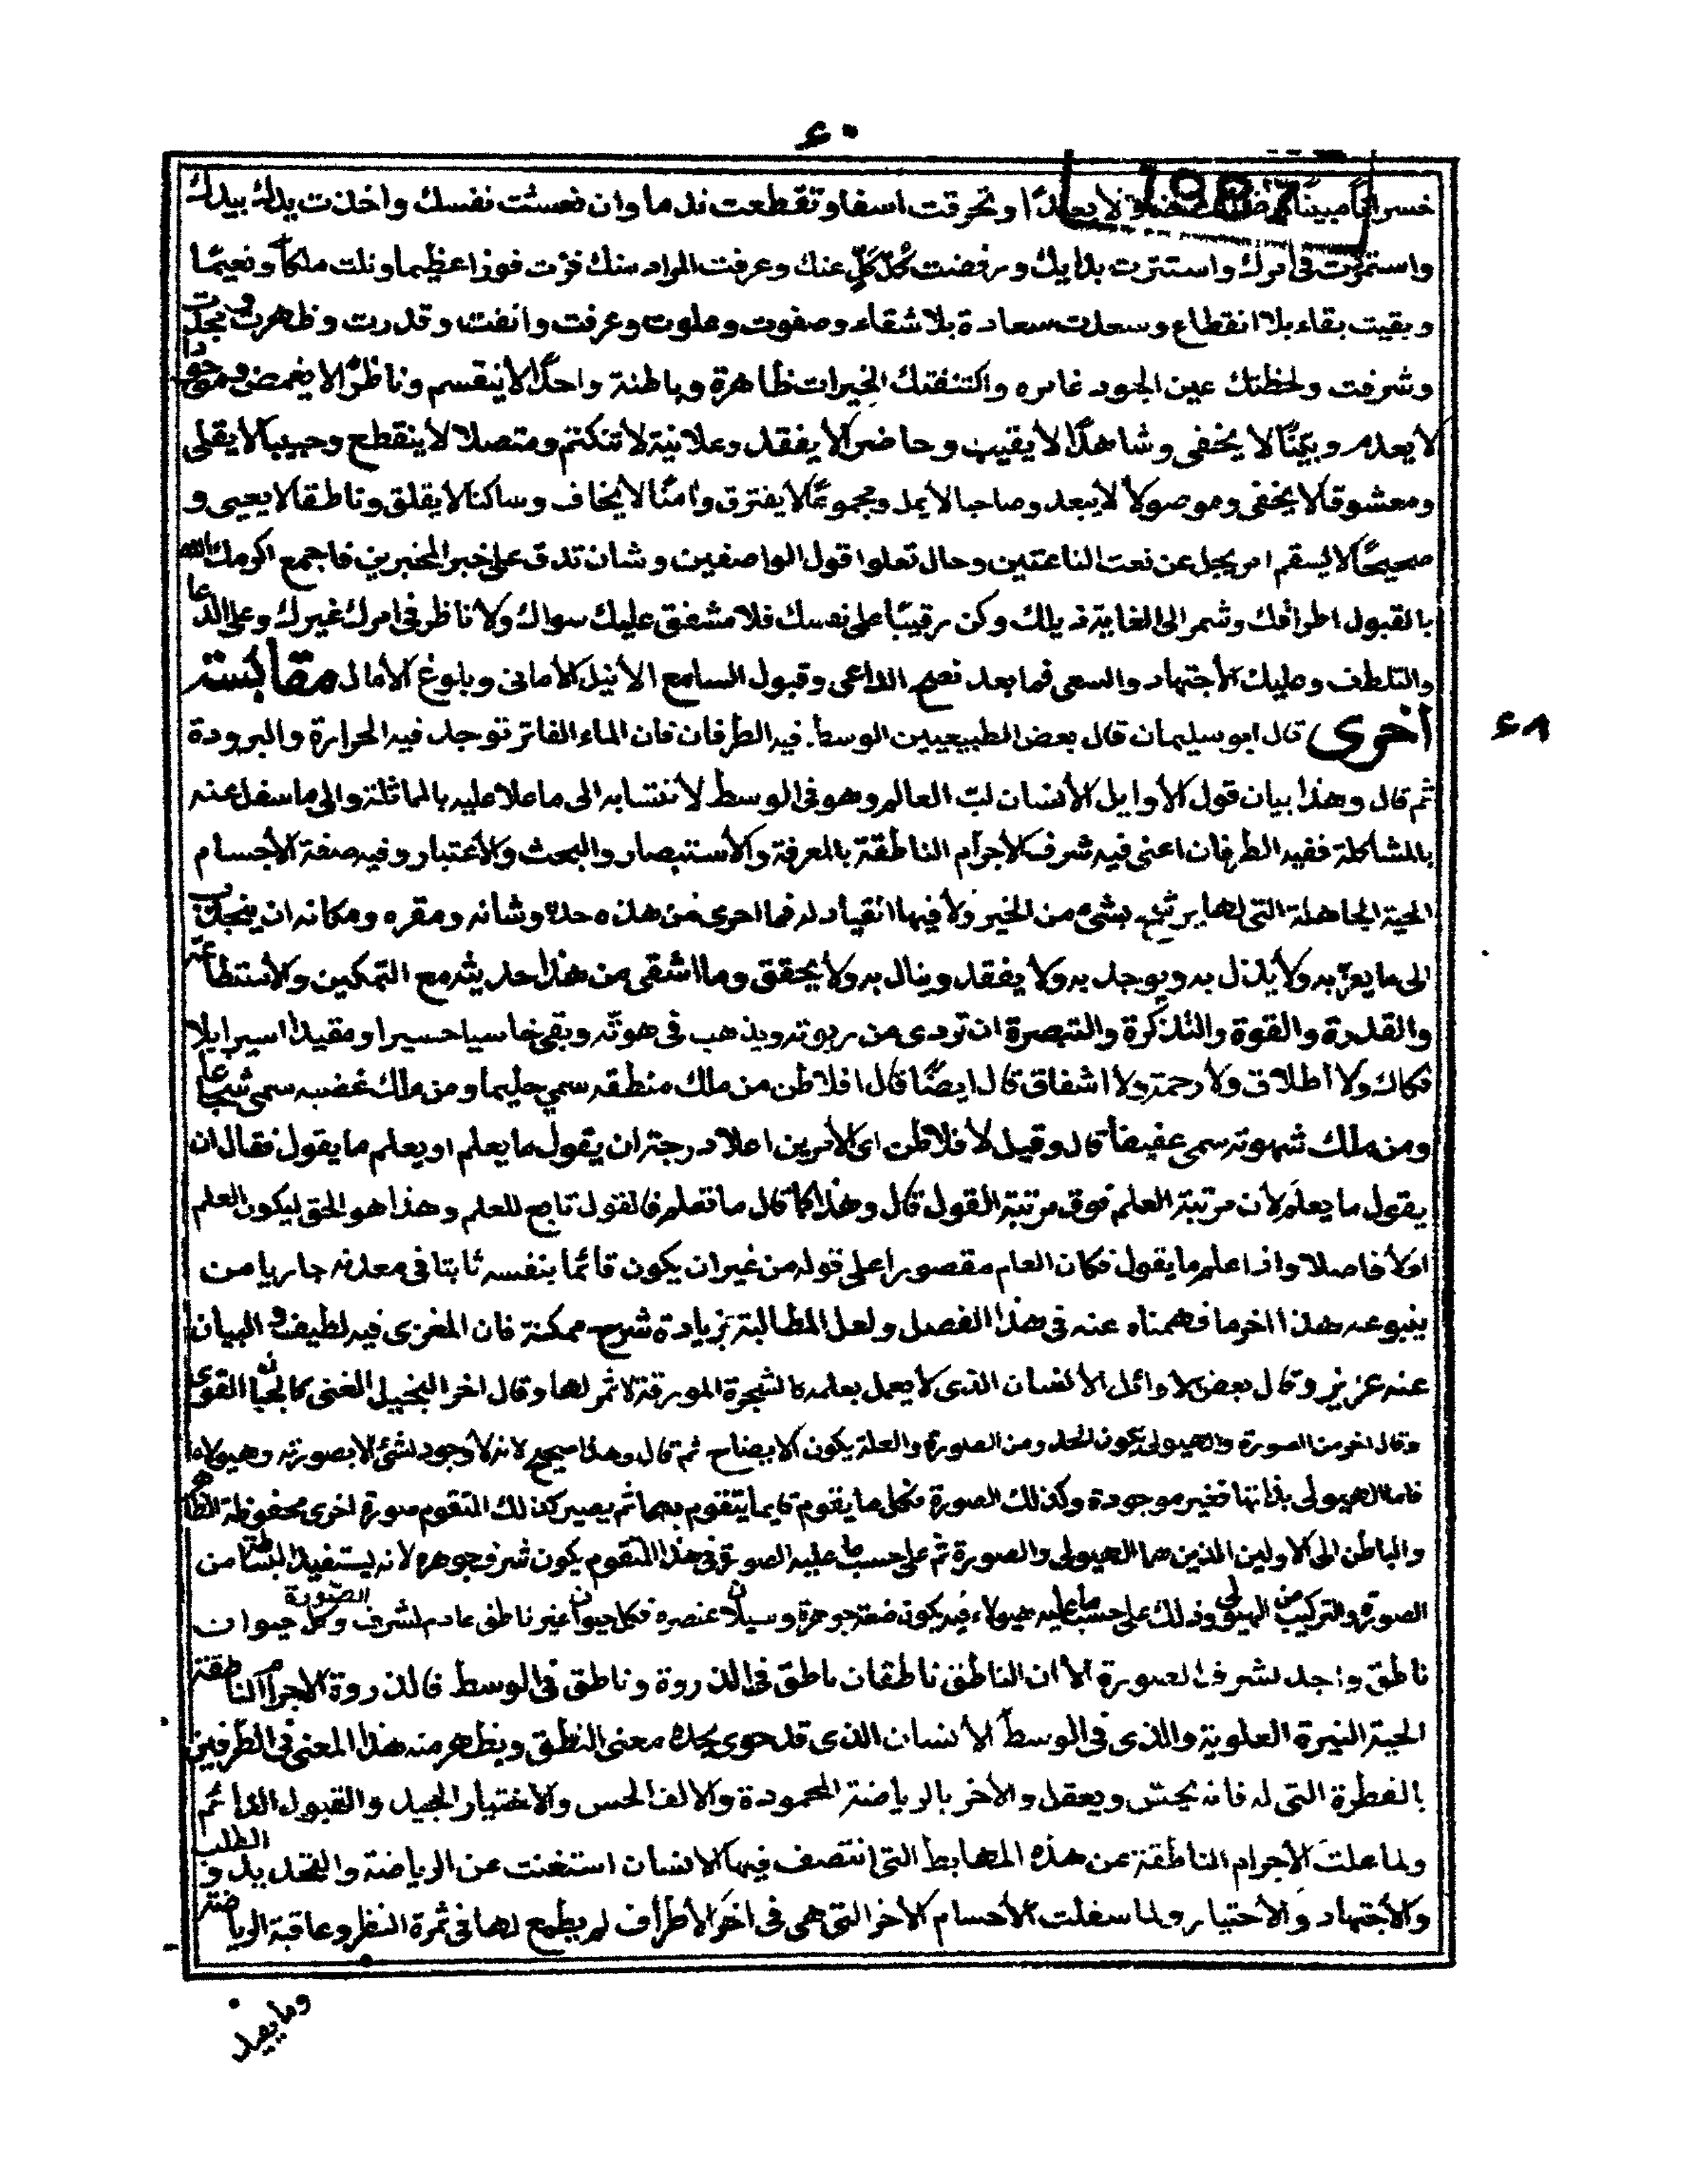 ٤٠
خسرانا مبينا لا وتحرقت اسفا وتقطعت ندما وان نعشت نفسك واخذت يدك بيدك
واستمررت في امرك واستنرت بذاتك ورفضت كل كل عنك وعرفت المراد منك فزت فوزا عظيما ونلت ملكا ونعيما
وبقيت بقاء بلا انقطاع وسعدت سعادة بلا شقاء وصفوت وعلوت وعرفت وانفت وقدرت وظهرت ومجدت
وشرفت ولحظتك عين الجود غامره واكتنفتك الخيرات ظاهرة وباطنة واحدا لا ينقسم وناظرا لا يغمض وموجودا
لا يعدم وبينا لا يخفى وشاهدا لا يغيب وحاضرا لا يفقد وعلانية لا تنكتم ومتصلا لا ينقطع وحبيبا لا يقلى
ومعشوقا لا يخفى وموصولا لا يبعد وصاحبا لا يمل ومجموعا لا يفترق وامنا لا يخاف وساكنا لا يقلق وناطقا لا يعيى و
صحيحا لا يسقم امر يجل عن نعت الناعتين وحال تعلوا قول الواصفين وشان تدق على خبر المخبرين فاجمع اكرمك الله
بالقبول اطرافك وشمر الى الغاية ذيلك وكن رقيبا على نفسك فلا مشفق عليك سواك ولا ناظر في امرك غيرك وعلي الدعا
والتلطف وعليك الاجتهاد والسعى فما بعد نصح الداعى وقبول السامع الا نيل الامانى وبلوغ الامال مقابسة
٤٨
اخرى قال ابو سليمان قال بعض الطبيعيين الوسط فيه الطرفان فان الماء الفاتر توجد فيه الحرارة والبرودة
ثم قال وهذا بيان قول الاوايل الانسان لب العالم وهو في الوسط لانتسابه الى ما علا عليه بالمماثلة والى ما سفل عنه
بالمشاكلة ففيه الطرفان اعنى فيه شرف الاجرام الناطقة بالمعرفة والاستبصار والبحث والاعتبار وفيه صفة الاجسام
الحية الجاهلة التى لها بشئ من الخير ولا فيها انقياد له فما احرى من هذه حده وشانه ومقره ومكانه ان ينجذب
الى ما يعز به ولا يذل به ويوجد به ولا يفقد وينال به ولا يحقق وما اشقى من هذا حديثه مع التمكين والاستطاعة
والقدرة والقوة والتذكرة والتبصرة ان تردى من ربوته ويذهب في هوته وبقى خاسيا حسيرا ومقيدا اسيرا بلا
فكاك ولا اطلاق ولا رحمة ولا اشفاق قال ايضا قال افلاطن من ملك منطقه سمي حليما ومن ملك غضبه سمى شجاعا
ومن ملك شهوته سمى عفيفا قال وقيل لافلاطن اى الامرين اعلا درجة ان يقول ما يعلم او يعلم ما يقول فقال ان
يقول ما يعلم لان مرتبة العلم فوق مرتبة القول قال وهذا كما قال ما تعلم فالقول تابع للعلم وهذا هو الحق ليكون العلم
اولا فاصلا واذا علم ما يقول فكان العلم مقصورا على قوله من غير ان يكون قائما بنفسه ثابتا في معدنه جاريا من
ينبوعه هذا اخر ما فهمناه عنه في هذا الفصل ولعل المطالبة بزيادة شرح ممكنة فان المغزى فيه لطيف والبيان
عنه عزيز وقال بعض الاوائل الانسان الذى لا يعمل بعلمه كالشجرة المورقة لا ثمر لها وقال اخر البخيل الغنى كالجبان القوى
وقال اخر من الصورة والهيولى يكون الحد ومن الصورة والعلة يكون الايضاح ثم قال وهذا صحيح لانه لا وجود لشئ الا بصورته وهيولاه
فاما الهيولى بذاتها فغير موجودة وكذلك الصورة فكل ما يقوم فانما يتقوم بهما ثم يصير كذلك المتقوم صورة اخرى محفوظة الظاهر
والباطن الى الاولين الذين هما الهيولى والصورة ثم على حسب ما عليه الصورة في هذا المتقوم يكون شرف جوهره لانه يستفيد البساطة من
الصورة والتركيب من الهيولى وذلك على حسب ما عليه هيولاه فيه يكون ضعة جوهرة وسيلان عنصره فكل حيوان غير ناطق عادم لشرف الصورة وكل حيوان
ناطق واجد لشرف الصورة الا ان الناطق ناطقان ناطق في الذروة وناطق في الوسط فالذروة الاجرام الناطقة
الحية النيرة العلوية والذى في الوسط الانسان الذى قد حوى بحده معنى النطق ويظهر منه هذا المعنى في الطرفين
بالفطرة التى له فانه يحس ويعقل والاخر بالرياضة المحمودة والالف الحسن والاختيار الجميل والقبول الدائم
ولما علت الاجرام الناطقة عن هذه المهابط التى انتصف فيها الانسان استغنت عن الرياضة والتحديد والطلب
والاجتهاد والاختيار ولما سفلت الاجسام الاخر التى هى في اخر الاطراف لم يطمع لها في ثمرة النظر وعاقبة الرياضة
وما يعد